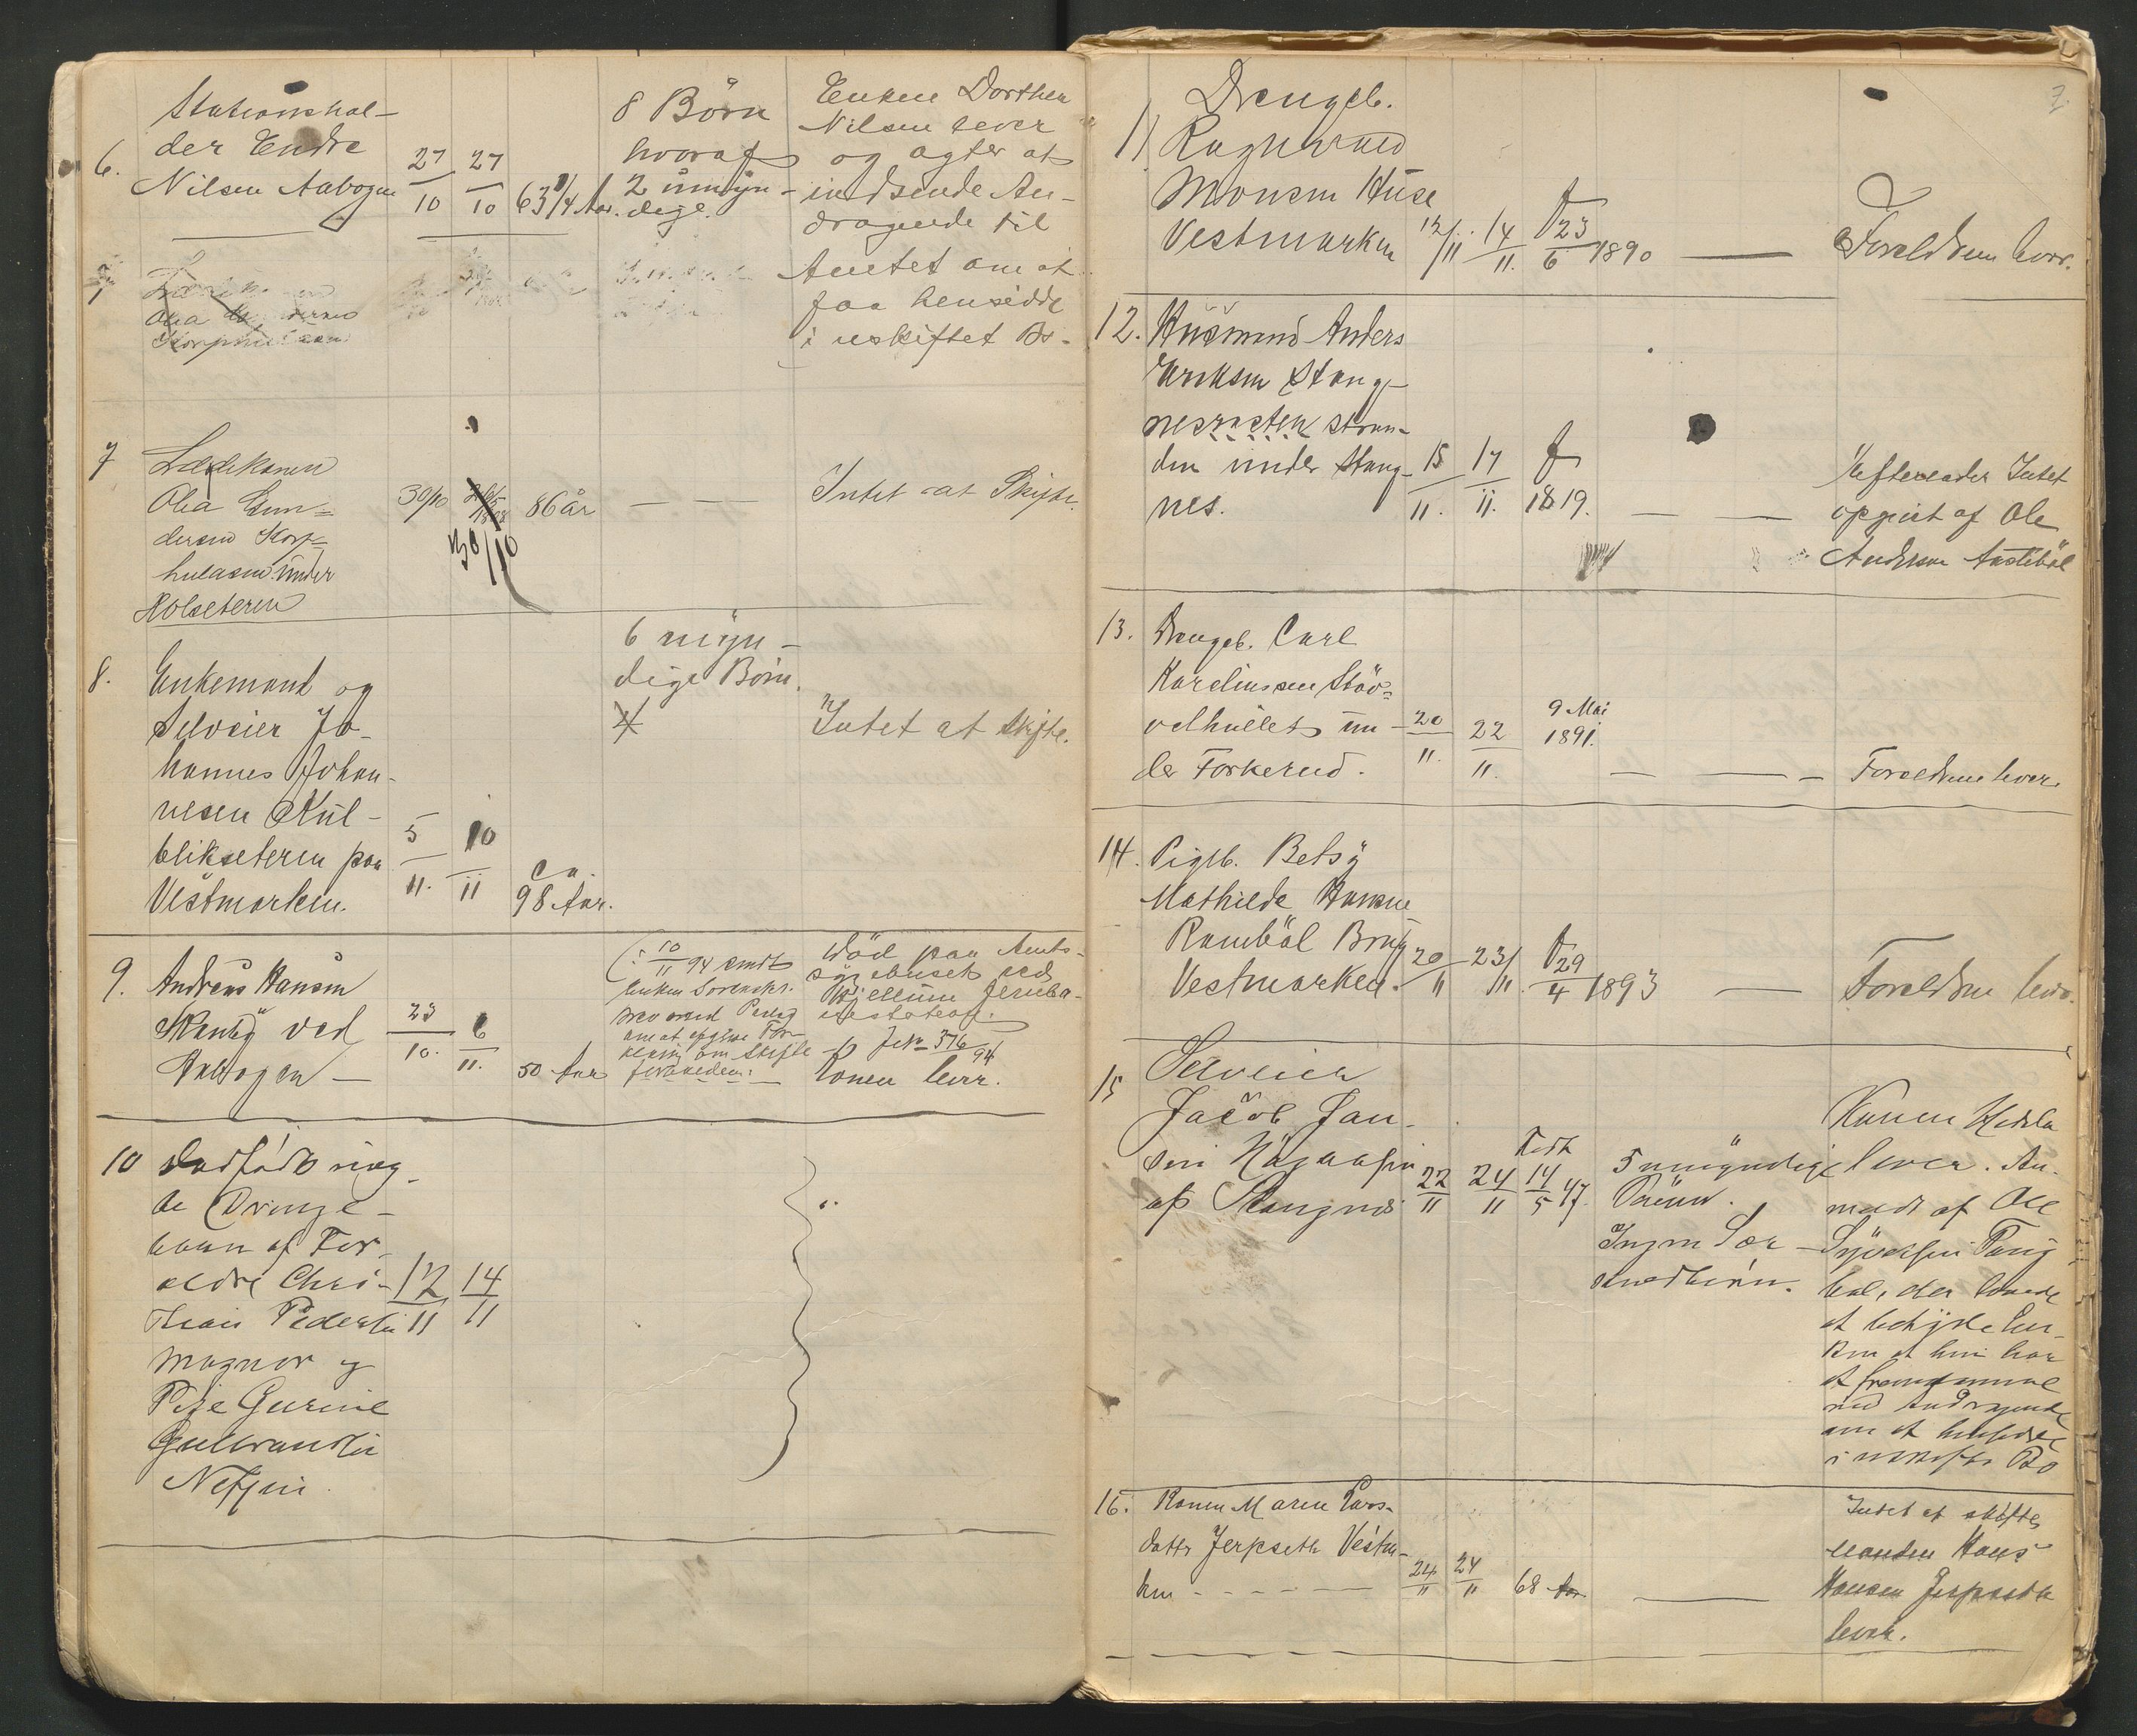 Stationshol-
6. der Endre
Nilsen Aabogen
27/10 27/10 63 3/4 Aar.
8 Börn
hvoraf
2 umyn-
dige.
Enken Dorthea
Nilsen lever
og agter at
indsende An-
dragende til
Amtet om at
faa hensidde
i uskiftet Bo.
7
Olia
7 Lægdekonen
Olia Gun-
dersen Korp-
hulaasen under
Holseteren
30/10 30/10 86 år — — Intet at Skifte.
8. Enkemand og
Selveier Jo-
hannes Johan-
nesen Kul-
blikseteren paa
Vestmarken.
5/11. 10/11 ca.
98 Aar.
6 myn-
dige Börn.
Intet at Skifte.
9. Andreas Hansen
Skanby ved
Aabogen —
23/10. 6/11. 50 Aar
(: 10/11 94 sendt
enken Sorenskr.
brev med Paalæg
om at afgive For-
klaring om Skifte
forholdene:
Död paa Amts-
sygehuset ved
Kjellum Jernba-
nestation.
Jr. No 376/94
Konen lever.
10 Dødfødt uæg-
te Drenge-
barn af For-
ældre Chri-
stian Pedersen
Magnor og
Pige Gurine
Gulbrandsen
12/11 14/11
11 Drengeb.
Ragnvald
Monsen Huse
Vestmarken
12/11 14/11. f 23/6 1890 — Forældrene lever.
12. Husmand Anders
Eriksen Stang-
nesrasten stran-
den under Stang-
nes.
15/11. 17/11. f
1819. — —
Efterlader Intet
opgivt af Ole
Andersen Aastebøl
13. Drengeb. Carl
Karelinssen Støv-
velhullet un-
der Torkerud.
20/11. 22/11. 9 Mai
1891. — — — Forældrene lever.
14. Pigeb. Betsy
Mathilde Hansen
Rambøl Brug
Vestmarken.
20/11 23/11. f 29/4 1893 — Forældrene lever.
15 Selveier
Jacob Jan-
sen
af Stangnes
22/11 24/11 Født
14/5 47.
5 umyndige
Børn.
Ingen Sær-
kuldbørn.
Konen Hedda
lever. An-
meldt af Ole
Syversen Tang
bøl, der lovede
at betyde En-
ken at hun har
at fremkomme
med Andragende
om at hensidde
i uskiftet Bo
16. Konen Maren Lars-
datter Jerpseth Vestm-
ken - - - -
24/11 24/11 68 Aar. —
Intet at skifte
Manden Hans
Hansen Jerpseth
lever.